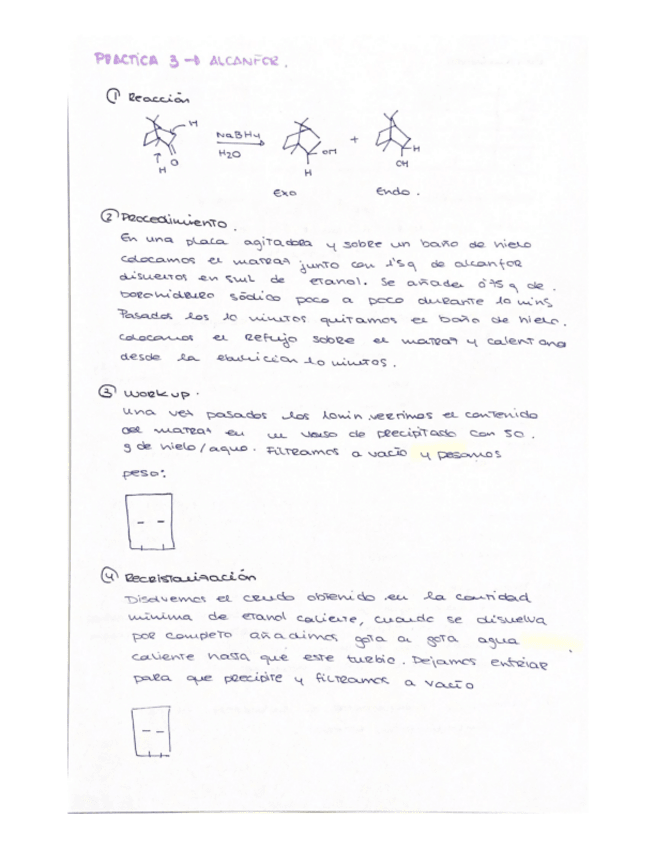 PRACTICA 3 → ALCANFOR.
① Reacción
H
NaBH4
H2O
+
O
H
OH
H
H
OH
Exo
Endo.
② Procedimiento.
En una placa agitadora y sobre un baño de hielo
colocamos el matraz junto con 1'5g de alcanfor
disueltos en 5mL de etanol. Se añaden 0'75 g de.
borohidruro sódico poco a poco durante 10 mins
Pasados los 10 minutos quitamos el baño de hielo.
Colocamos el refujo sobre el matraz y calentana
desde la ebullición 10 minutos.
③ Workup.
Una vez pasados los 10min verrimos el contenido
del matraz en un vaso de precipitado con 50.
g de hielo/agua. Filtramos a vacío y pesamos
peso:
④ Recristalización
Disolvemos el crudo obtenido en la cantidad
mínima de etanol caliente, cuando se disuelva
por completo añadimos gota a gota agua
caliente hasta que este turbio. Dejamos enfriar
para que precipite y filtramos a vacío